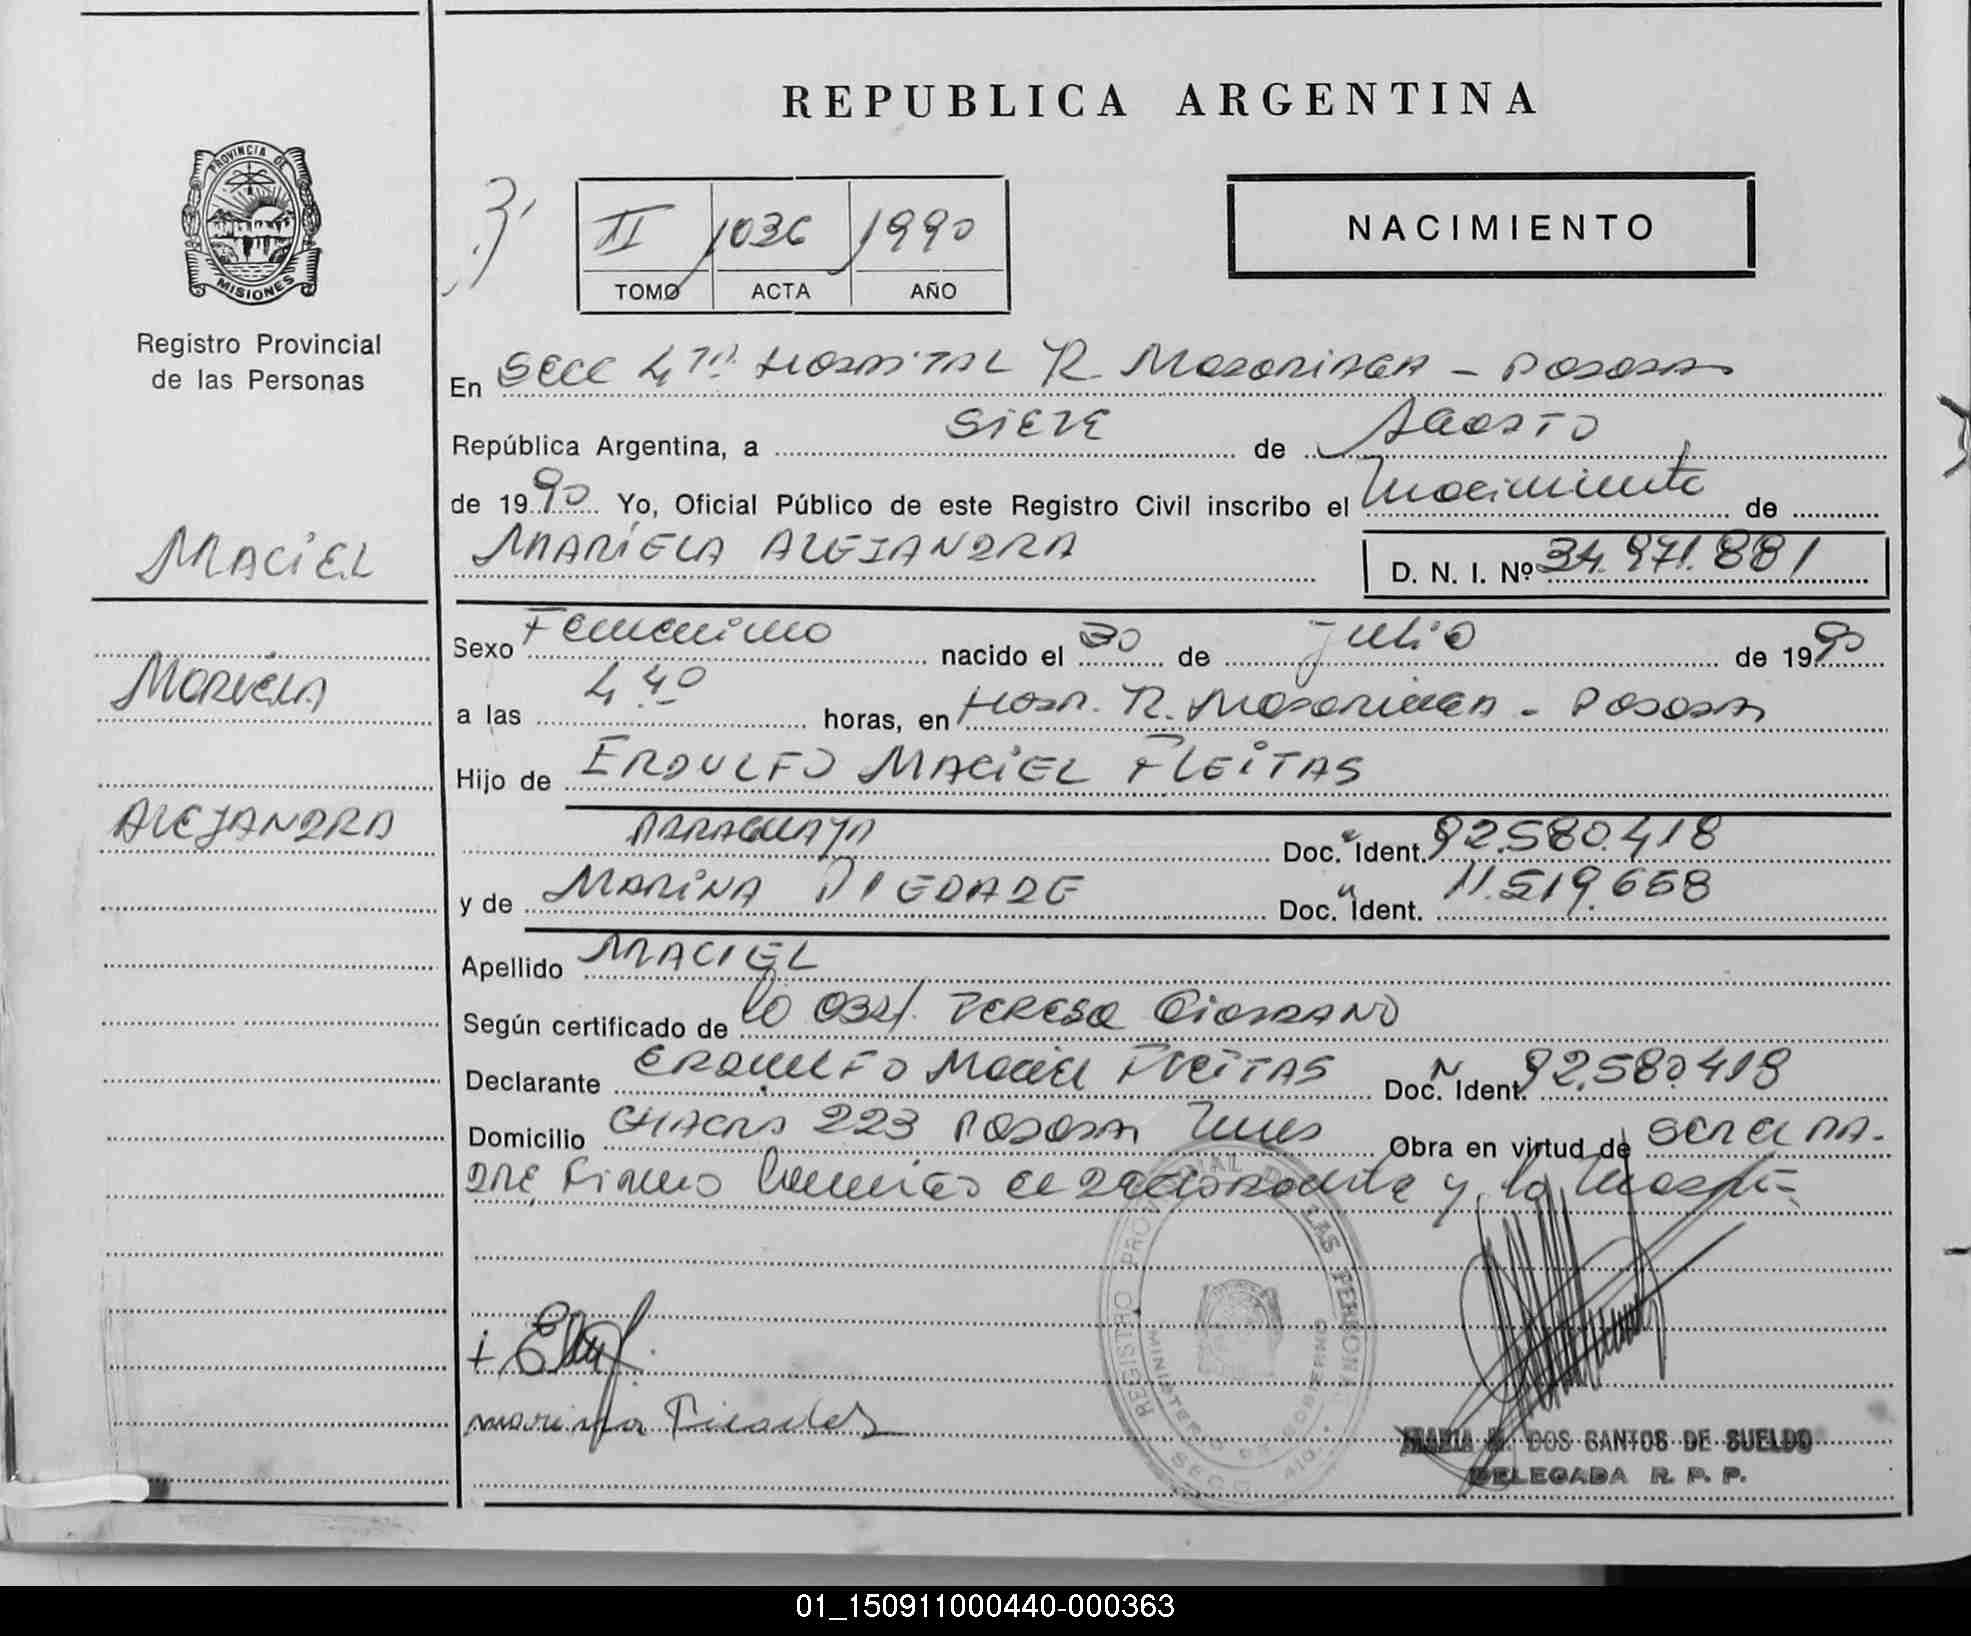 REPUBLICA ARGENTINA
PROVINCIA DE
MISIONES
Registro Provincial
de las Personas
II 1036 1990
TOMO ACTA AÑO
NACIMIENTO
En SECC 4TA HOSPITAL R. MADARIAGA - POSADAS
República Argentina, a SIETE de AGOSTO
de 1990 Yo, Oficial Público de este Registro Civil inscribo el Nacimiento de
MARIELA ALEJANDRA D. N. I. Nº 34.971.881
MACIEL
MARIELA
ALEJANDRA
Sexo Femenino nacido el 30 de Julio de 1990
a las 4,40 horas, en HOSP. R. MADARIAGA - POSADAS
Hijo de ERDULFO MACIEL FLEITAS
PARAGUAYA Doc. Ident. 92.580.418
y de MARINA PIEDADE Doc. Ident. 11.519.658
Apellido MACIEL
Según certificado de la OBST. TERESA GIORDANO
Declarante ERDULFO MACIEL FLEITAS Doc. Ident. 92.580.418
Domicilio CHACRA 223 POSADAS Mnes Obra en virtud de SER EL PA-
DRE, Firman el declarante y la
REGISTRO PROVINCIAL DE LAS PERSONAS
MINISTERIO DE GOBIERNO
SECC
MARIA DOS SANTOS DE SUELDO
DELEGADA R. P. P.
01_150911000440-000363